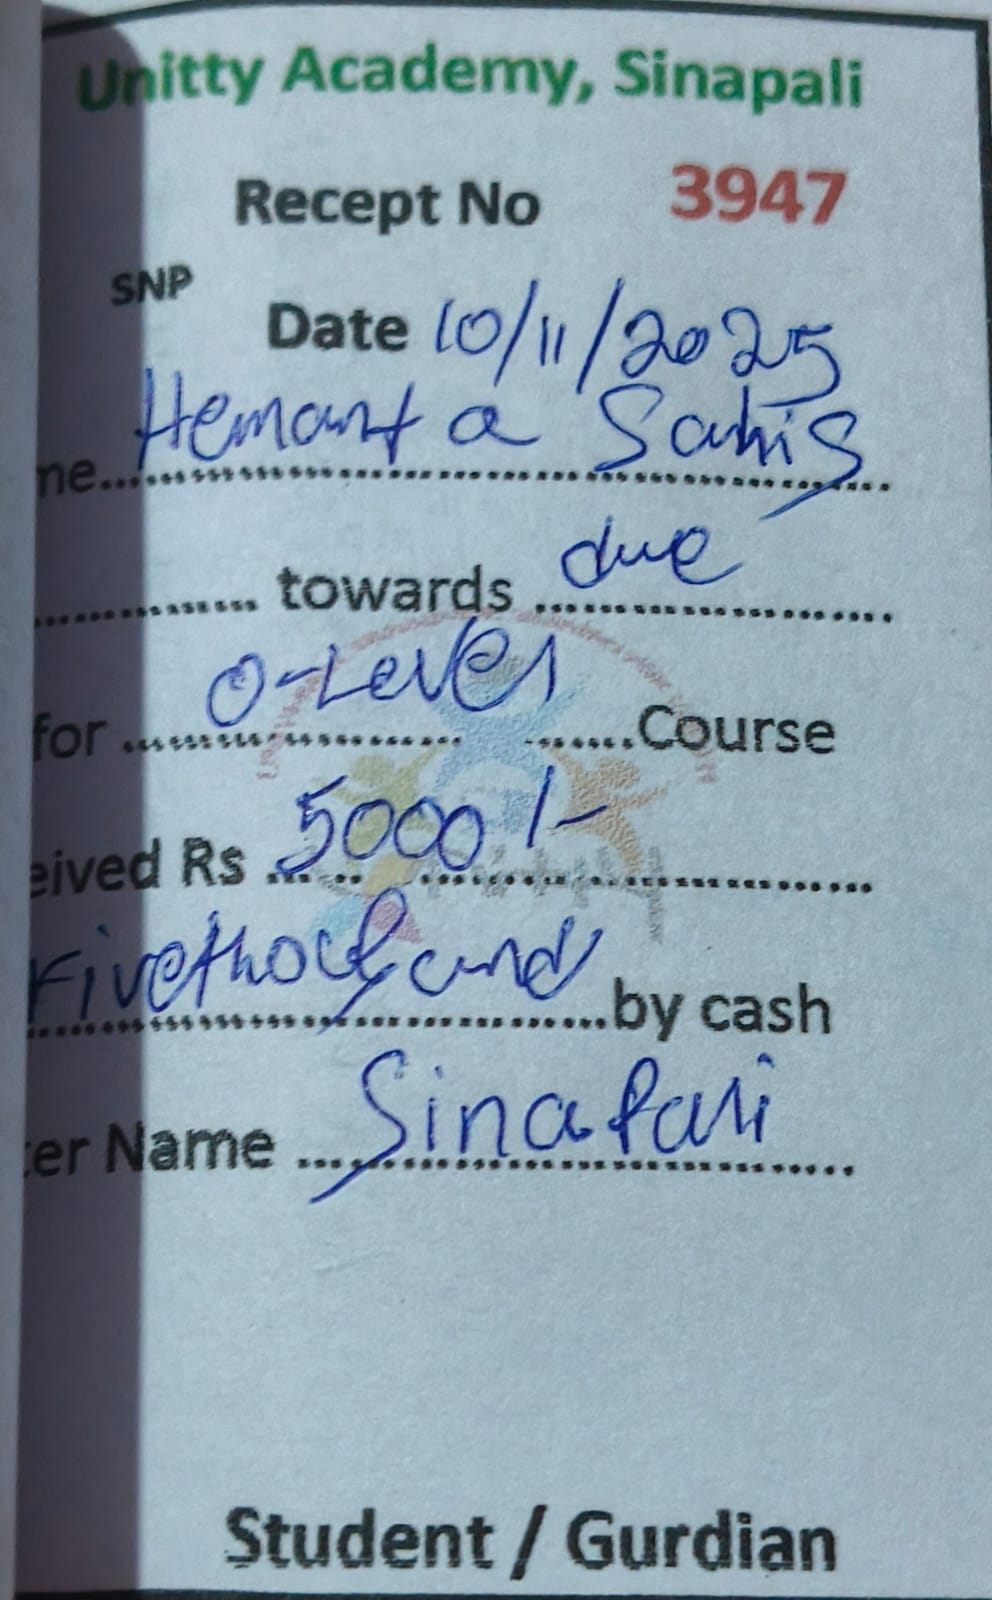 Unitty Academy, Sinapali
Recept No 3947
SNP
Date 10/11/2025
me... Hemant a Sahis
............... towards due
for O-Level Course
eived Rs 5000/-
Fivethousand by cash
ter Name Sinapali
Student / Gurdian